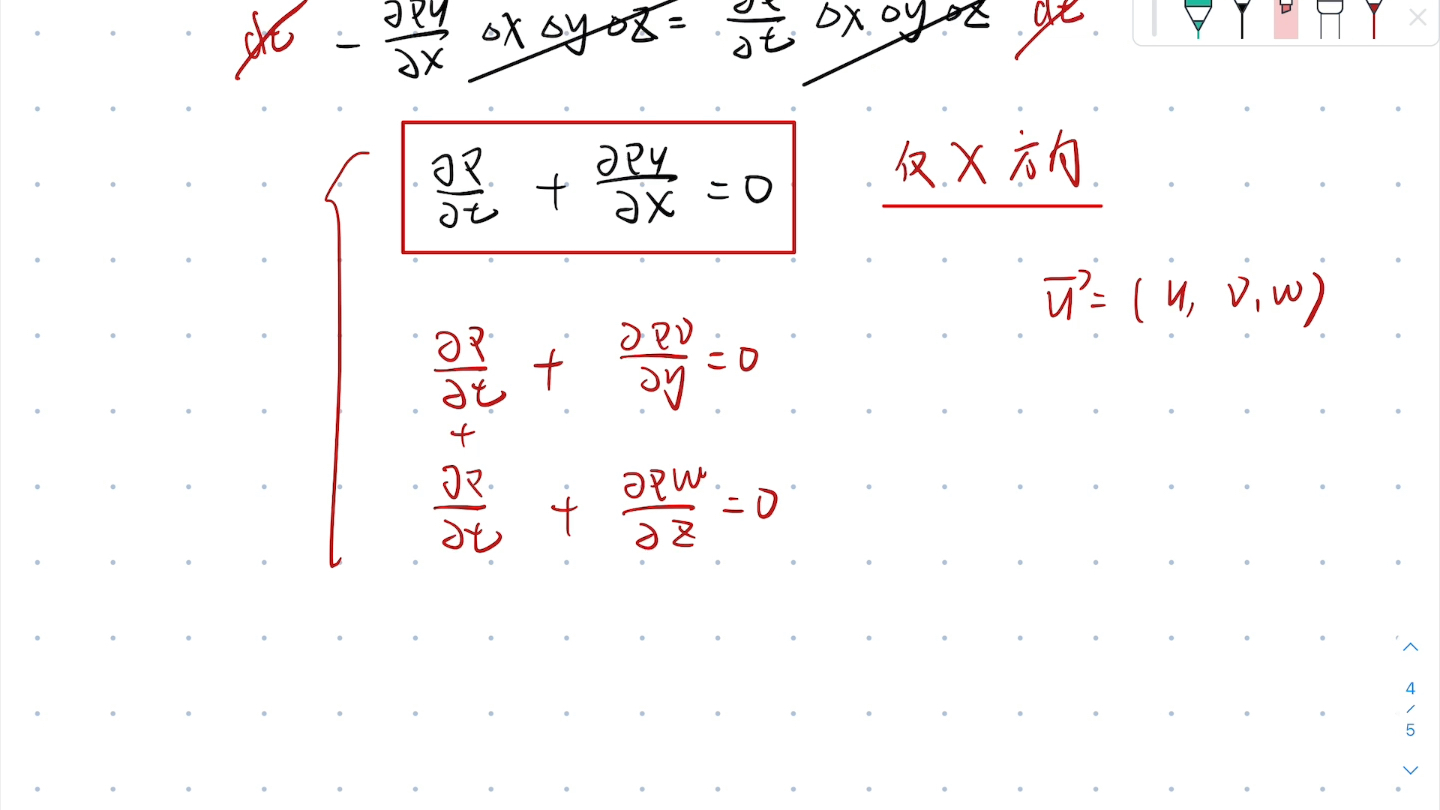 dt - ∂ρu/∂x Δx Δy Δz = ∂ρ/∂t Δx Δy Δz dt
∂ρ/∂t + ∂ρu/∂x = 0 仅 X 方向
u⃗ = (u, v, w)
∂ρ/∂t + ∂ρv/∂y = 0
+
∂ρ/∂t + ∂ρw/∂z = 0
4
/
5